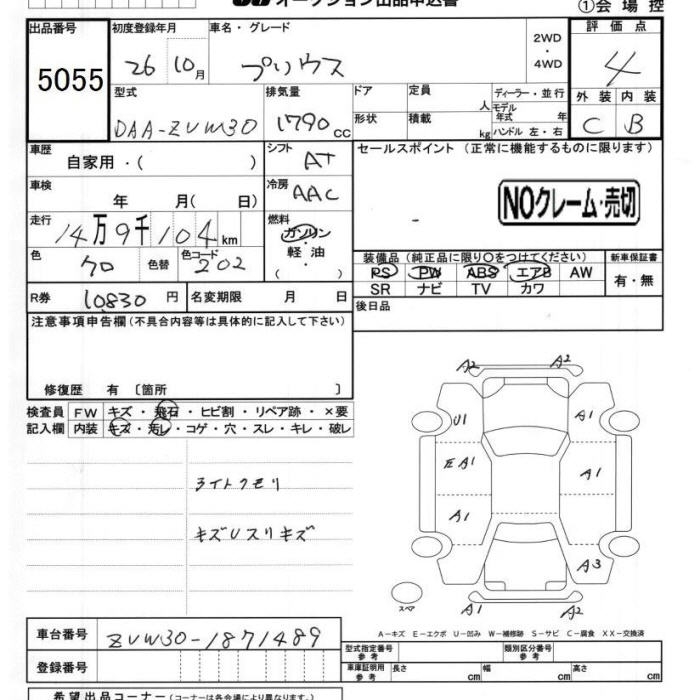 オークション出品申込書
①会場控
出品番号
5055
初度登録年月
26 10月
車名・グレード
プリウス
2WD
・
4WD
評価点
4
外装 内装
C B
型式
DAA-ZVW30
排気量
1790 cc
ドア
形状
定員 人
積載 kg
ディーラー・並行
モデル
年式 年
ハンドル 左・右
車歴
自家用・( )
シフト
AT
セールスポイント (正常に機能するものに限ります)
NOクレーム・売切
車検
年 月( 日)
冷房
AAC
走行
14万9千104km
燃料
ガソリン
・
軽油
・
( )
色
クロ
色替
色コード
202
装備品 (純正品に限り〇をつけてください)
PS PW ABS エアB AW
SR ナビ TV カワ
新車保証書
有・無
R券 10830 円
名変期限 月 日
後日品
注意事項申告欄 (不具合内容等は具体的に記入して下さい)
修復歴 有 〔箇所 〕
検査員
記入欄
FW キズ・飛石・ヒビ割・リペア跡・×要
内装 キズ・汚レ・コゲ・穴・スレ・キレ・破レ
ライトクモリ
キズUスリキズ
A2 A2
U1 A1
E A1 A1
A1 A1
A3
A1 A2
スペア
A－キズ E－エクボ U－凹み W－補修跡 S－サビ C－腐食 XX－交換済
車台番号
ZVW30-1871489
登録番号
型式指定番号
参考
類別区分番号
参考
車庫証明用
参考
長さ cm
幅 cm
高さ cm
希望出品コーナー (コーナーは各会場により異なります。)